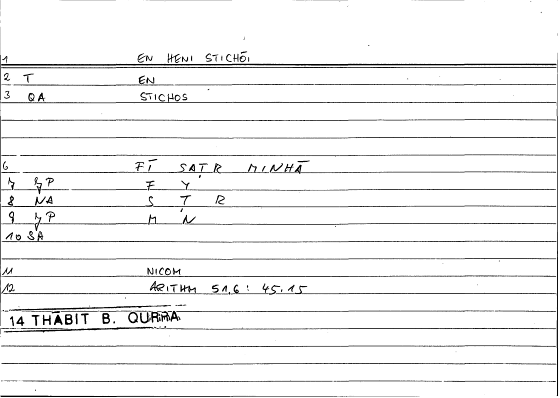 1 EN HENI STICHŌI
2 T EN
3 QA STICHOS
6 FĪ SAṬR MINHĀ
7 ȜP F Y
8 NA S Ṭ R
9 ȜP M N
10 SA
11 NICOM
12 ARITHM 51,6 : 45.15
14 THĀBIT B. QURRA